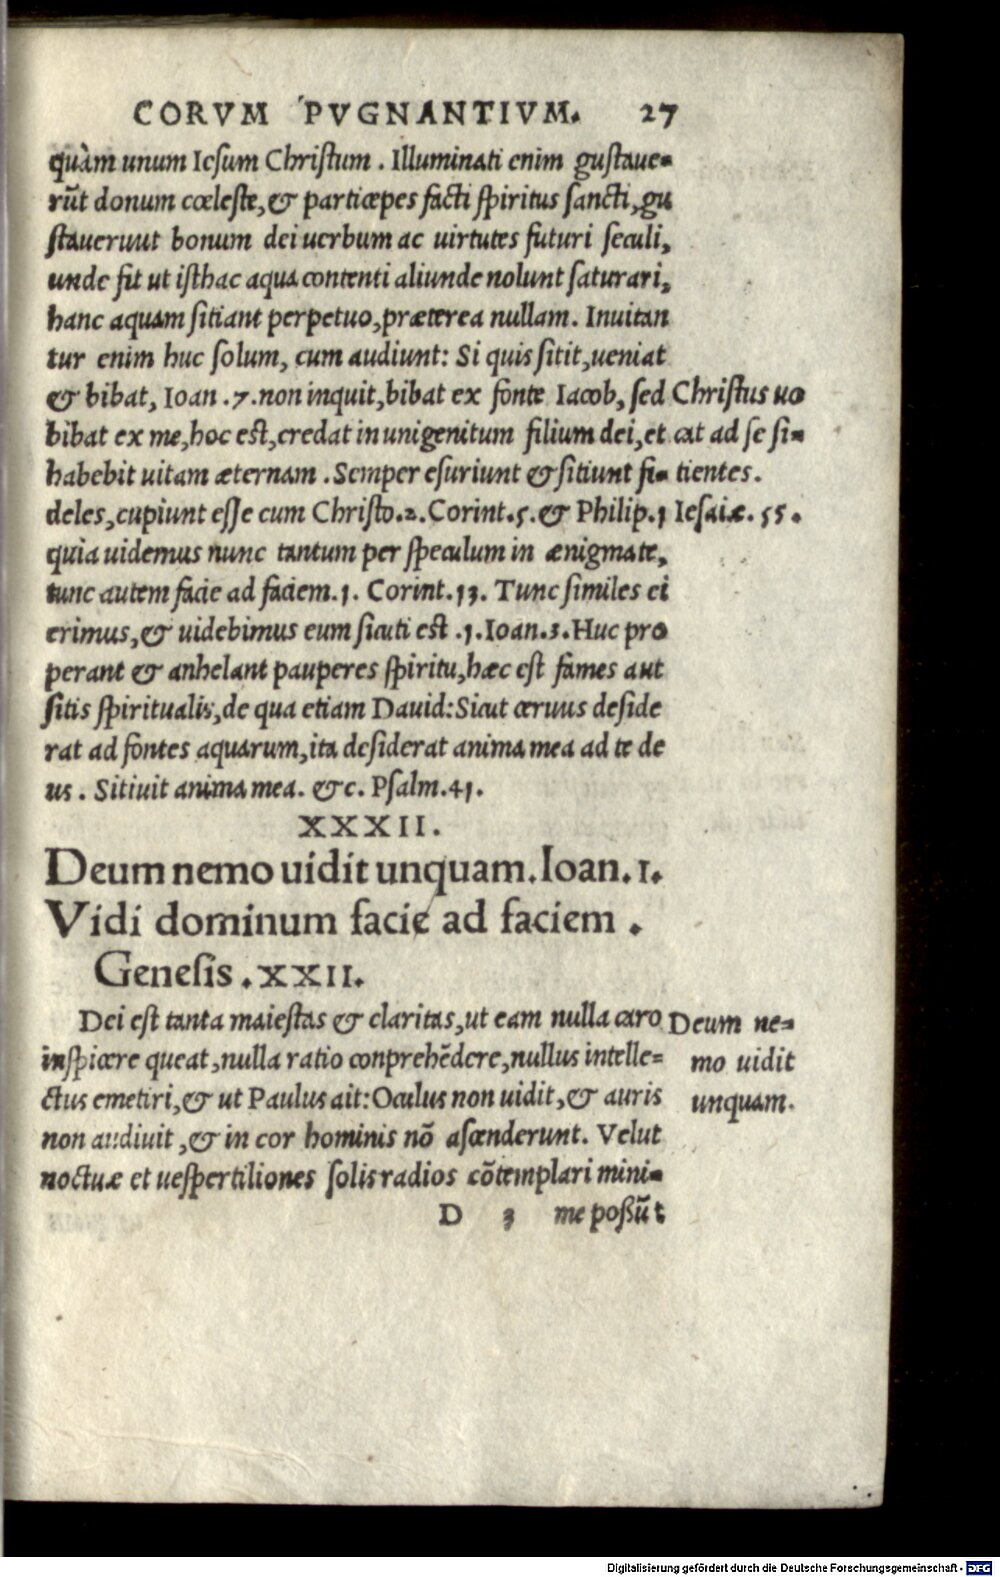 CORVM PVGNANTIVM. 27
quàm unum Iesum Christum . Illuminati enim gustaue-
rūt donum cœleste,& participes facti spiritus sancti,gu
stauerunt bonum dei uerbum ac uirtutes futuri seculi,
unde fit ut isthac aqua contenti aliunde nolunt saturari,
hanc aquam sitiant perpetuo,præterea nullam. Inuitan
tur enim huc solum, cum audiunt: Si quis sitit,ueniat
& bibat, Ioan .7.non inquit,bibat ex fonte Iacob, sed
bibat ex me,hoc est,credat in unigenitum filium dei,et
habebit uitam æternam . Semper esuriunt & sitiunt fi-
deles,cupiunt esse cum Christo.2.Corint.5.& Philip.1
quia uidemus nunc tantum per speculum in ænigmate,
tunc autem facie ad faciem.1. Corint.13. Tunc similes ei
erimus,& uidebimus eum sicuti est .1.Ioan.3.Huc pro
perant & anhelant pauperes spiritu,hæc est fames aut
sitis spiritualis,de qua etiam Dauid:Sicut ceruus deside
rat ad fontes aquarum,ita desiderat anima mea ad te de
us . Sitiuit anima mea. &c. Psalm.41.
Christus uo
cat ad se si-
tientes.
Iesaiæ. 55.
XXXII.
Deum nemo uidit unquam.Ioan.1.
Vidi dominum facie ad faciem .
Genesis .XXII.
Dei est tanta maiestas & claritas,ut eam nulla caro
inspicere queat,nulla ratio conprehēdere,nullus intelle-
ctus emetiri,& ut Paulus ait:Oculus non uidit,& auris
non audiuit ,& in cor hominis nō ascenderunt. Velut
noctuæ et uespertiliones solis radios cōtemplari mini-
Deum ne-
mo uidit
unquam.
D 3 me poßūt
Digitalisierung gefördert durch die Deutsche Forschungsgemeinschaft - DFG